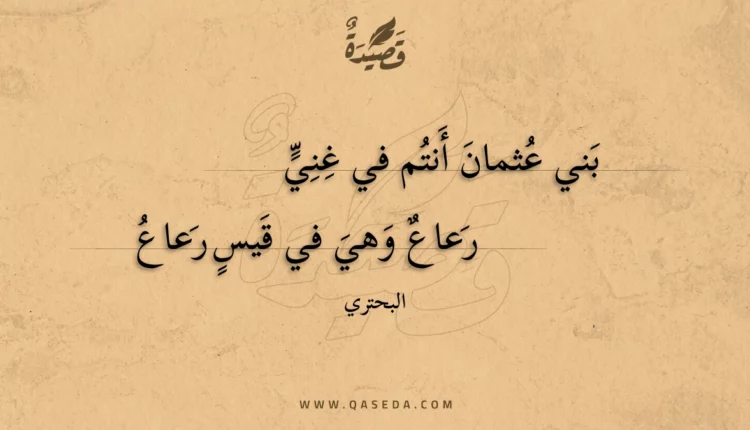 قَصِيْدَةٌ
بَني عُثمانَ أَنتُم في غِنِيٍّ
رَعاعٌ وَهيَ في قَيسٍ رَعاعُ
البحتري
WWW.QASEDA.COM